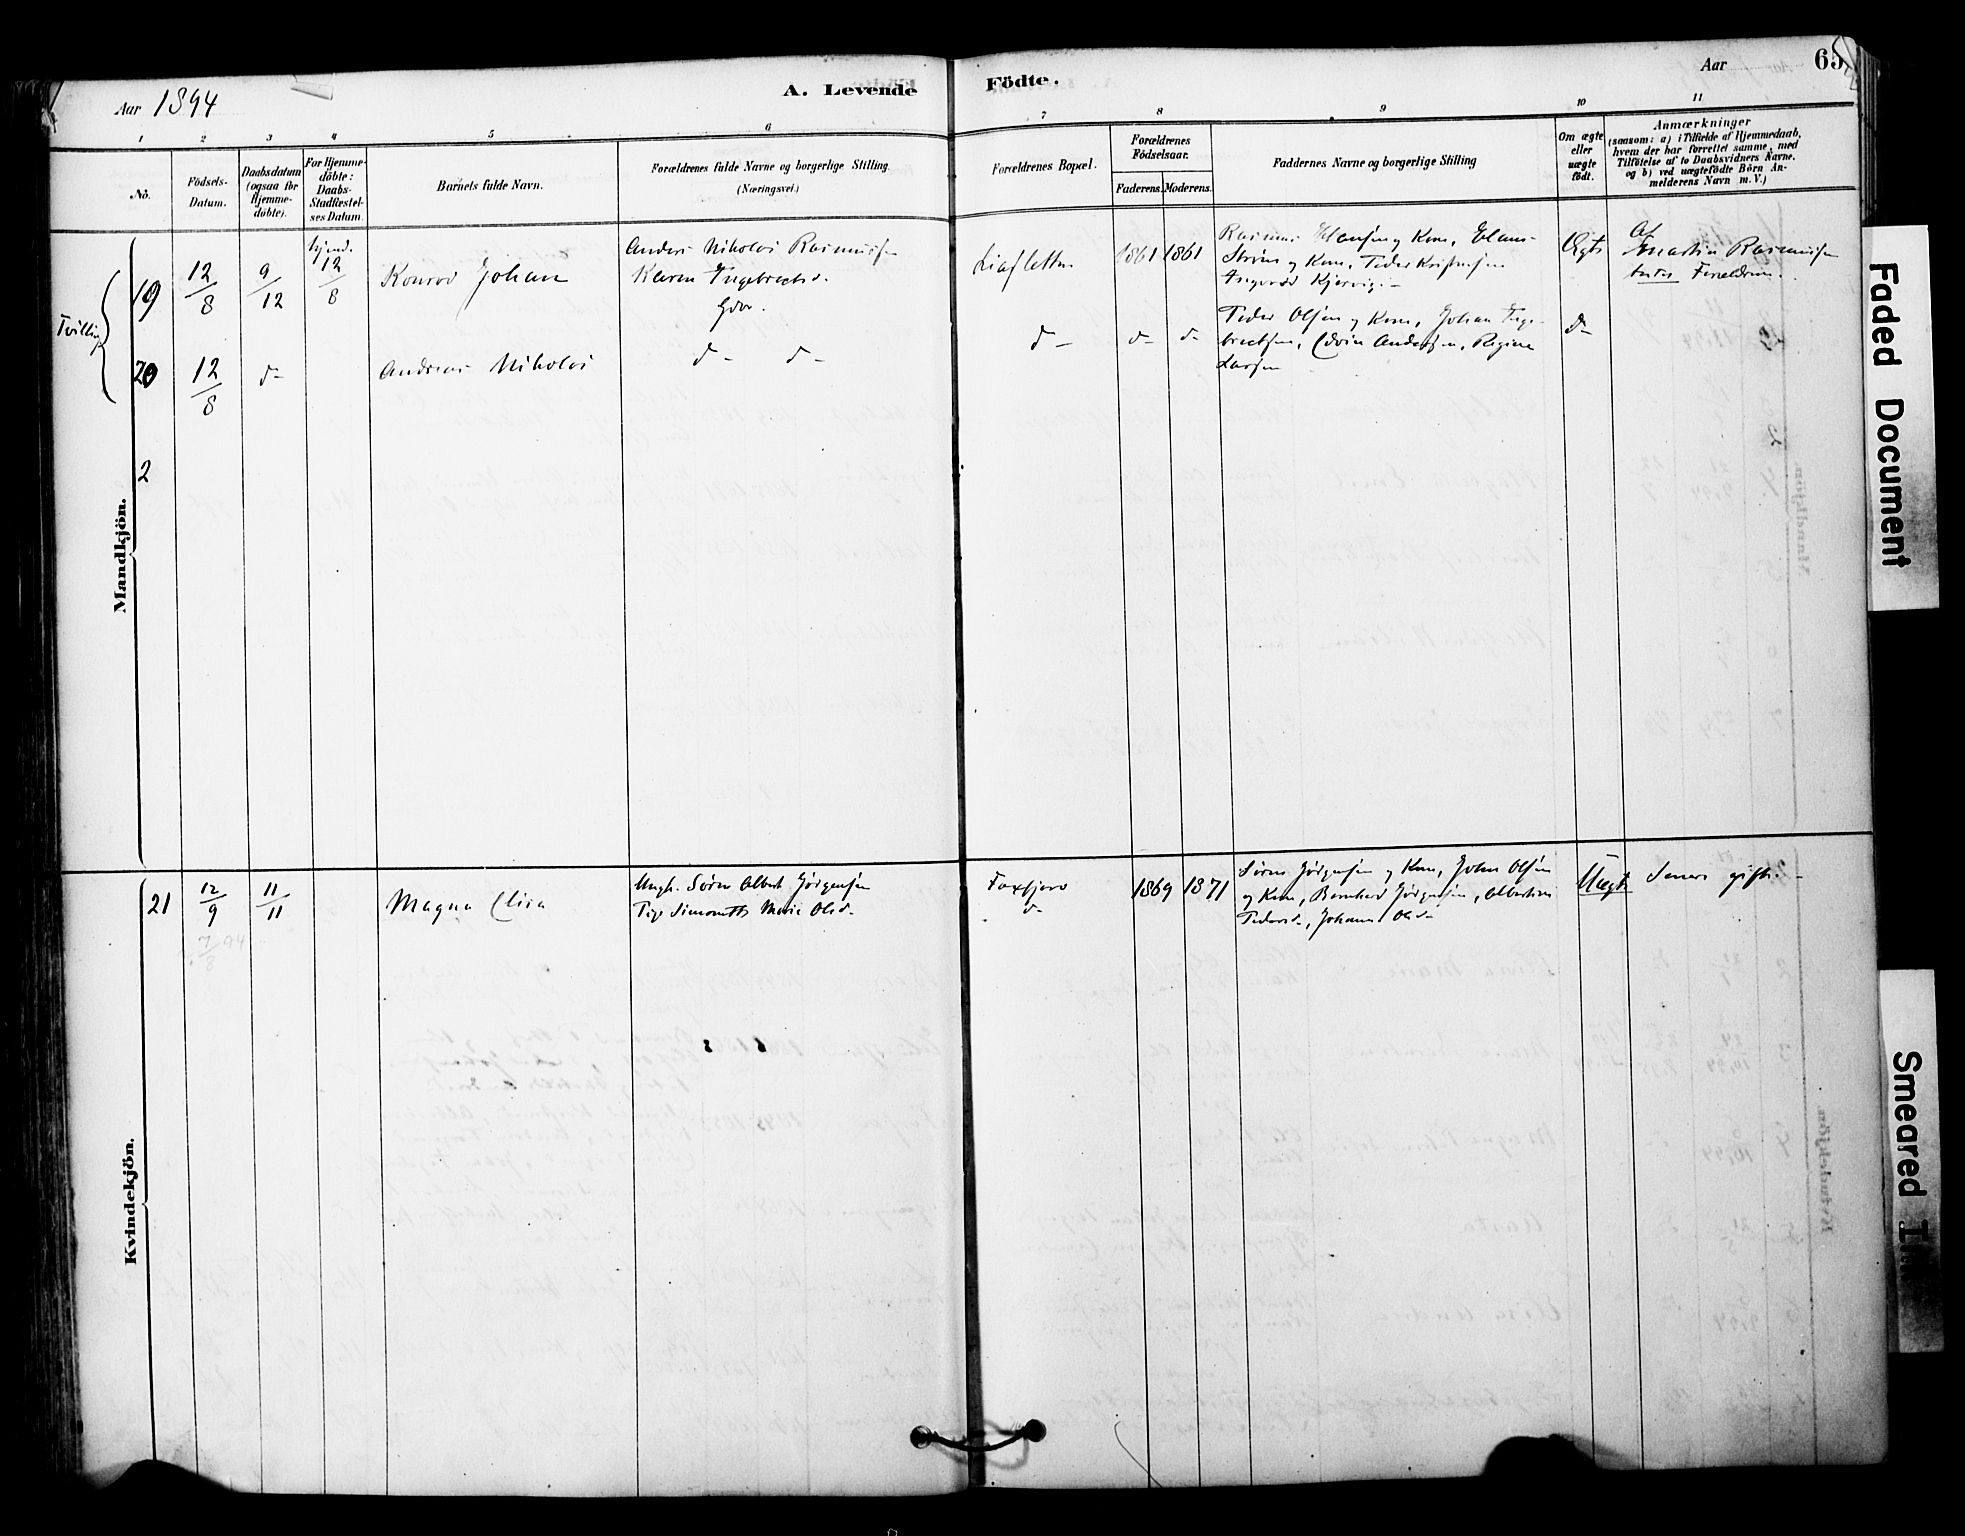 Aar 1894
A. Levende
Födte.
Aar
65
1 2 3 4 5 6 7 8 9 10 11
No.
Födsels-
Datum.
Daabsdatum
(ogsaa for
Hjemme-
döbte).
For Hjemme-
döbte:
Daabs-
Stadfæstel-
ses Datum
Barnets fulde Navn.
Forældrenes fulde Navne og borgerlige Stilling.
(Næringsvei.)
Forældrenes Bopæl.
Forældrenes
Födselsaar.
Faderens. Moderens.
Faddernes Navne og borgerlige Stilling
Om ægte
eller
uægte
födt.
Anmærkninger
(saasom: a) i Tilfælde af Hjemmedaab,
hvem der har forrettet samme, med
Tilföielse af to Daabsvidners Navne,
og b) ved uægtefödte Börn An-
melderens Navn m. V.)
Mandkjön.
Tvilling
19
12/8
9/12
hjemd. 12/8
Konrad Johan
Anders Nikolai Rasmussen
Karen Ingebrechtsd.
Gdbr.
1861 1861
Rasmus Hansen og Kone, Claus
Ström og Kone, Peder
Ægte
Af
Martin Rasmussen
Forældrene.
20
12/8
d-
Andreas Nikolai
d- d-
d-
d- d-
Peder Olsen og Kone, Johan Inge-
brechtsen, Edvin Andersen, Regine
Larsen
d-
2
Kvindekjön.
21
12/9
11/11
7/8 94
Magna Elisa
Ungk. Sören Albert Jörgensen
Pige Simonette Marie Olsd-
Faxfjord
d-
1869 1871
Sörine Jörgensen og Kone, Johan Olsen
og Kone, Bernhard Jörgensen, Albertine
Pedersd-, Johanna Olsd-
Uægte
Senere gift.
Faded Document
Smeared